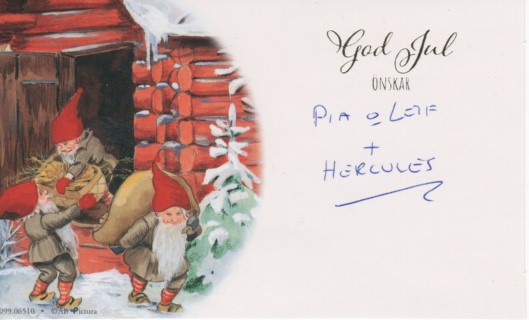 God Jul
ÖNSKAR
PIA o LEIF
+
HERCULES
099.06510 • ©AB Pictura